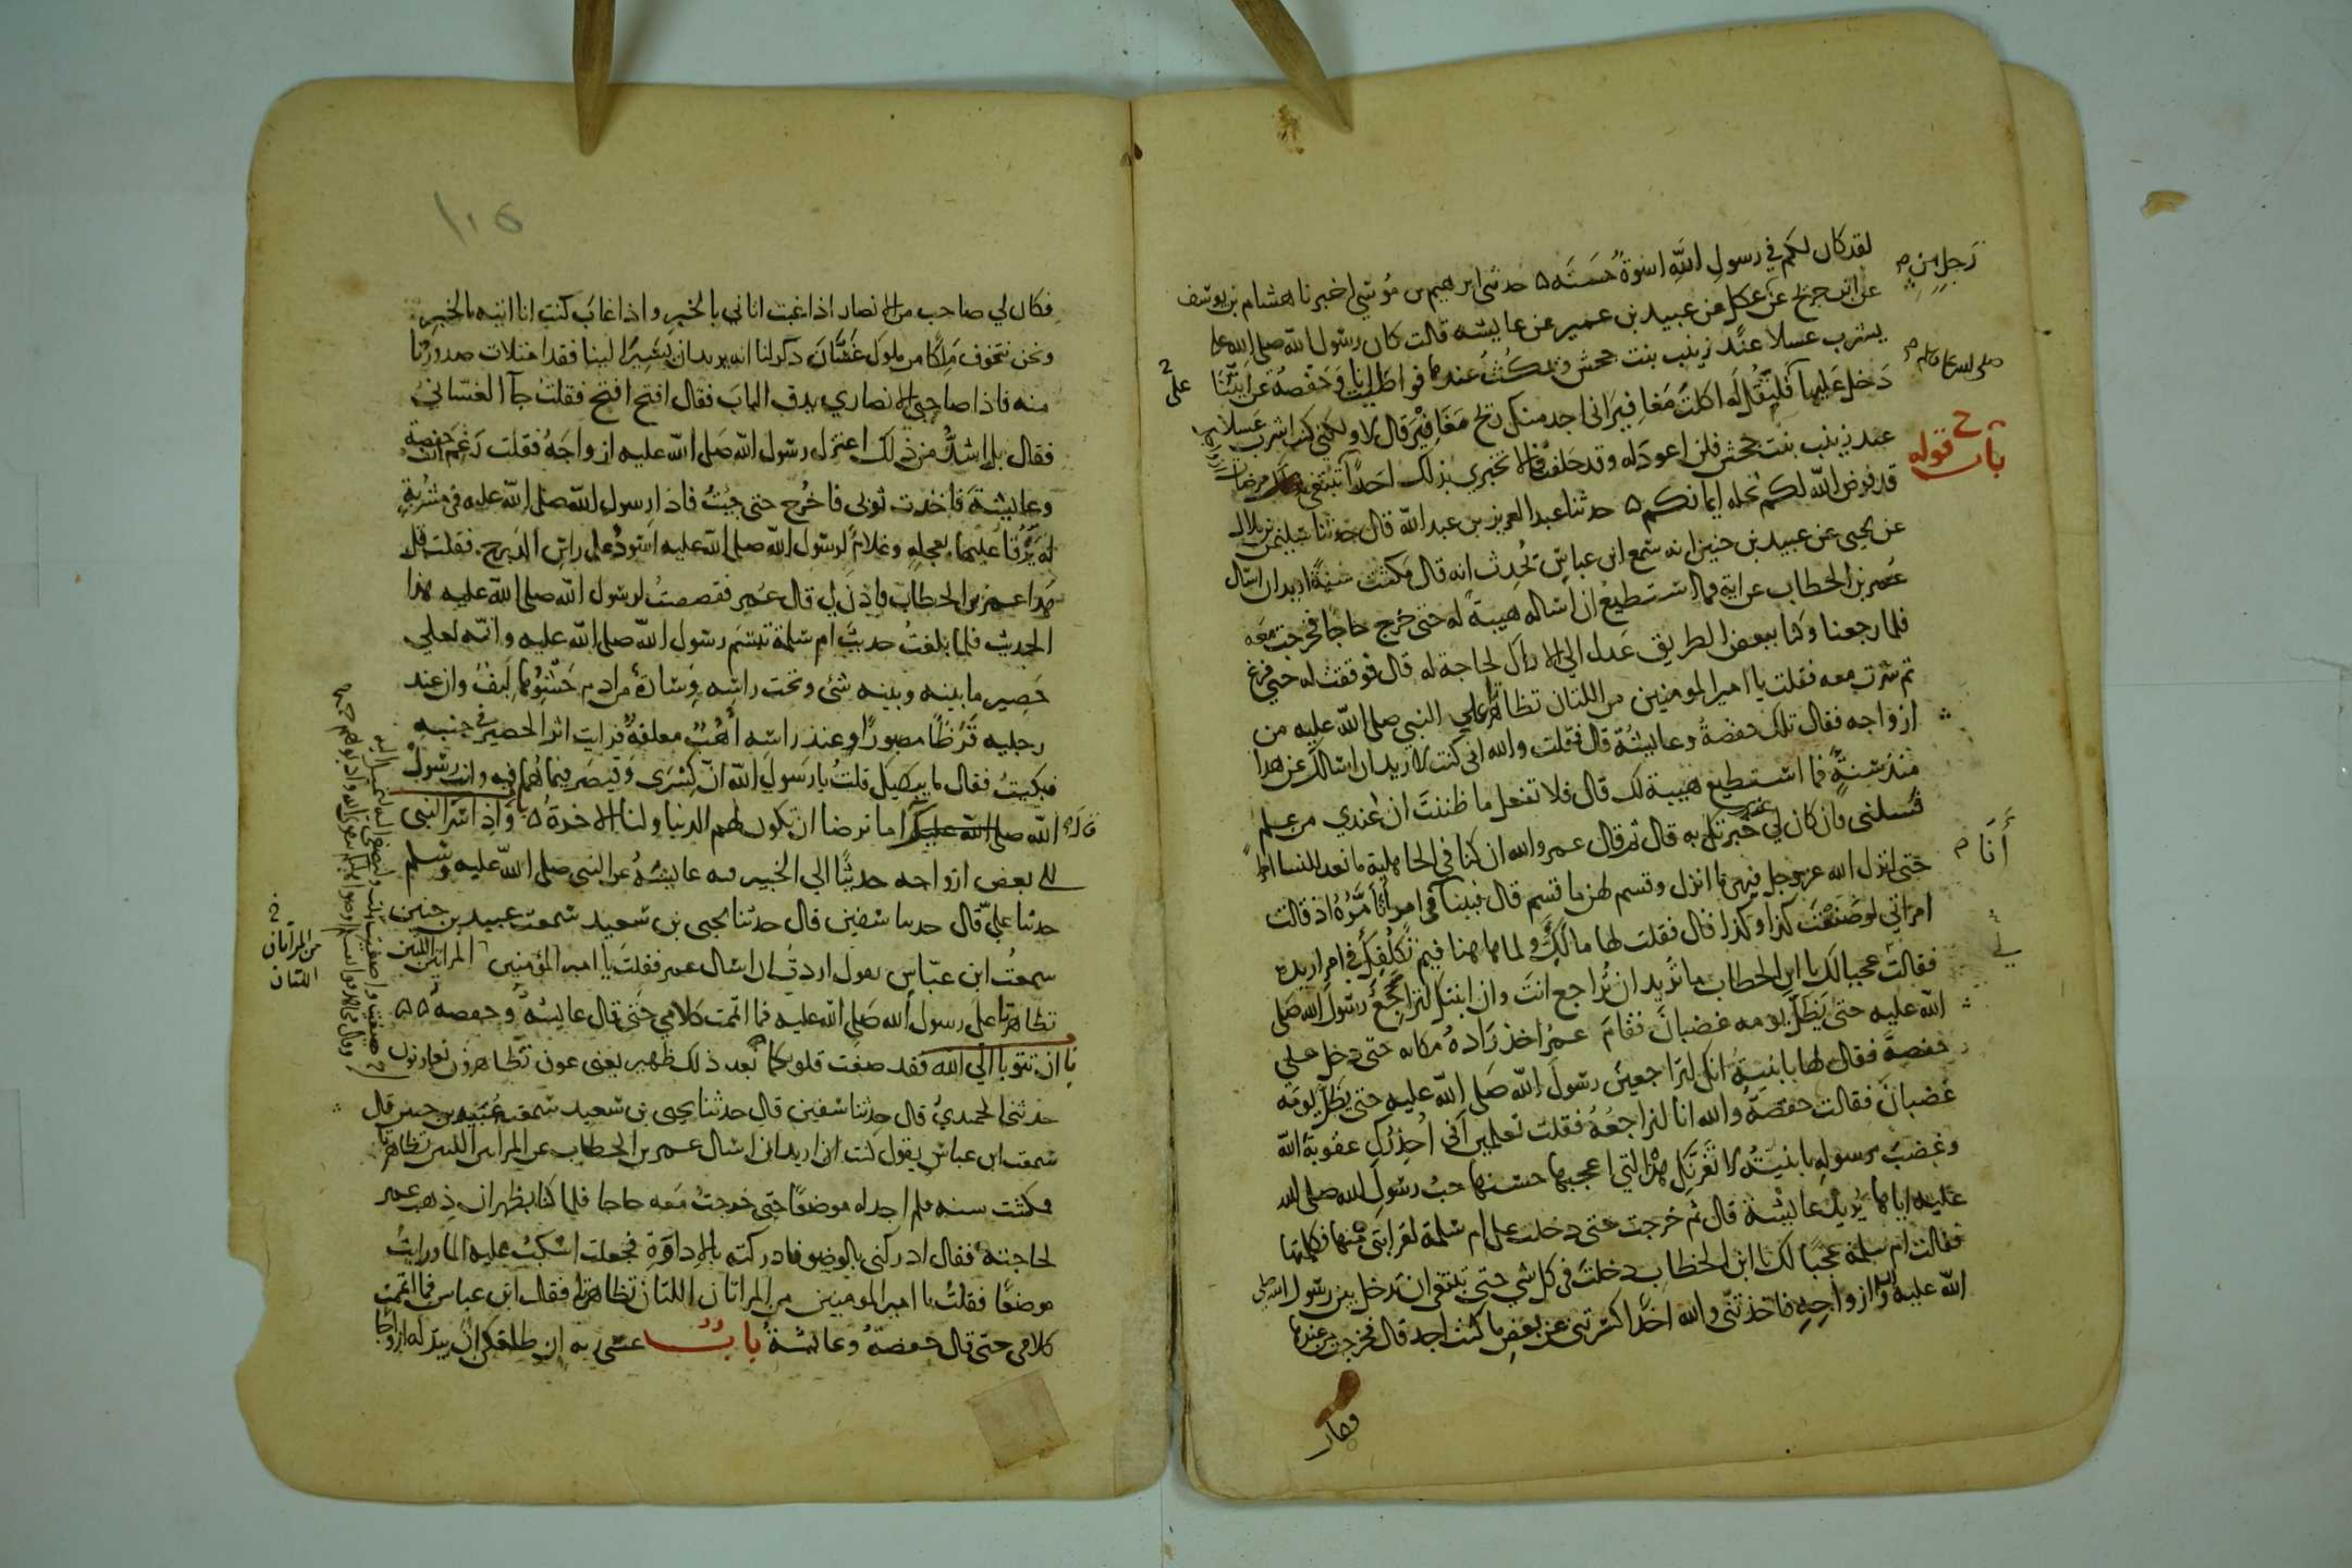 لقد كان لكم في رسول الله اسوة حسنة ۵ حدثني ابرهيم بن موسي اخبرنا هشام بن يوسف
عن ابن جريج عن عطا عن عبيد بن عمير عن عايشه قالت كان رسول الله صلى الله عليه
يشرب عسلا عند زينب بنت جحش ويمكث عندها فواطات انا وحفصة عن ايتنا
دخل عليها فليقل له اكلت مغافير اني اجد منك ريح مغافير قال لا ولكني كنت اشرب عسلا
عند زينب بنت جحش فلن اعود له وقد حلفت لا تخبري بذلك احدا تبتغي مرضات
قد فرض الله لكم تحلة ايمانكم ۵ حدثنا عبد العزيز بن عبد الله قال حدثنا سليمن بن بلال
عن يحيى عن عبيد بن حنين انه سمع ابن عباس يحدث انه قال مكثت سنة اريد ان اسال
عمر بن الخطاب عن اية فما استطيع ان اساله هيبة له حتى خرج حاجا فخرجت معه
فلما رجعنا وكنا ببعض الطريق عدل الي الاراك لحاجة له قال فوقفت له حتى فرغ
ثم سرت معه فقلت يا امير المومنين من اللتان تظاهرتا علي النبي صلى الله عليه من
ازواجه فقال تلك حفصة وعايشة قال فقلت والله اني كنت لاريد ان اسالك عن هذا
منذ سنة فما استطيع هيبة لك قال فلا تفعل ما ظننت ان عندي من علم
فسلني فان كان لي علم خبرتك به قال ثم قال عمر والله ان كنا في الجاهلية ما نعد للنسا امرا
حتى انزل الله عز وجل فيهن ما انزل وقسم لهن ما قسم قال فبينا في امر اتامره اذ قالت
امراتي لو صنعت كذا وكذا قال فقلت لها مالك ولما هاهنا فيم تكلفك في امر اريده
فقالت عجبا لك يا ابن الخطاب ما تريد ان تراجع انت وان ابنتك لتراجع رسول الله صلى
الله عليه حتى يظل يومه غضبان فقام عمر اخذ رداه مكانه حتى دخل على
حفصة فقال لها يا بنية انك لتراجعين رسول الله صلى الله عليه حتى يظل يومه
غضبان فقالت حفصة والله انا لنراجعه فقلت تعلمين اني احذرك عقوبة الله
وغضب رسوله يا بنية لا تغرنك هذه التي اعجبها حسنها حب رسول الله صلى الله
عليه اياها يريد عايشة قال ثم خرجت حتى دخلت على ام سلمة لقرابتي منها فكلمتها
فقالت ام سلمة عجبا لك يا ابن الخطاب دخلت في كل شي حتى تبتغي ان تدخل بين رسول الله صلى
الله عليه وازواجه فاخذتني والله اخذا كسرتني عن بعض ما كنت اجد قال فخرجت من عندها
رجل من م
صلى الله عليه وسلم م
باب قوله
أنا م
في
على
فكان
فكان لي صاحب من الانصار اذا غبت اتاني بالخبر واذا غاب كنت انا اتيه بالخبر
ونحن نتخوف ملكا من ملوك غسان ذكر لنا انه يريد ان يسير الينا فقد امتلات صدورنا
منه فاذا صاحبي الانصاري يدق الباب فقال افتح افتح فقلت جآ الغساني
فقال بل اشد من ذلك اعتزل رسول الله صلى الله عليه ازواجه فقلت رغم انف حفصة
وعايشة فاخذت ثوبي فاخرج حتى جيت فاذا رسول الله صلى الله عليه في مشربة
له يرقا عليها بعجلة وغلام لرسول الله صلى الله عليه اسود على راس الدرج فقلت قل
هذا عمر بن الخطاب فاذن لي قال عمر فقصصت لرسول الله صلى الله عليه هذا
الحديث فلما بلغت حديث ام سلمة تبسم رسول الله صلى الله عليه وانه لعلي
حصير ما بينه وبينه شئ وتحت راسه وسادة من ادم حشوها ليف وان عند
رجليه قرظا مصبورا وعند راسه أهب معلقة فرايت اثر الحصير في جنبه
فبكيت فقال ما يبكيك قلت يا رسول الله ان كسرى وقيصر فيما هما فيه وانت رسول
الله صلى الله عليك اما ترضا ان تكون لهم الدنيا ولنا الاخرة ۵ واذ اسر النبي
الي بعض ازواجه حديثا الي الخبير فيه عايشة عن النبي صلى الله عليه وسلم
حدثنا علي قال حدثنا سفين قال حدثنا يحيى بن سعيد سمعت عبيد بن حنين
سمعت ابن عباس يقول اردت ان اسال عمر فقلت يا امير المؤمنين المراتين اللتين
تظاهرتا على رسول الله صلى الله عليه فما اتممت كلامي حتى قال عايشة وحفصة ۵۵
ان تتوبا الي الله فقد صغت قلوبكما بعد ذلك ظهير يعني عون تظاهرون تعاونون
حدثنا الحميدي قال حدثنا سفين قال حدثنا يحيى بن سعيد سمعت عبيد بن حنين قال
سمعت ابن عباس يقول كنت ان اريد ان اسال عمر بن الخطاب عن المراتين اللتين تظاهرتا
فمكثت سنه فلم اجد له موضعا حتى خرجت معه حاجا فلما كنا بظهران ذهب عمر
لحاجته فقال ادركني بالوضو فادركته بالاداوة فجعلت اسكب عليه الما ورايت
موضعا فقلت يا امير المومنين من المراتان اللتان تظاهرتا فقال ابن عباس فما اتممت
كلامي حتى قال حفصة وعائشة باب عسى ربه ان طلقكن ان يبدله ازواجا
من المراتان
اللتان